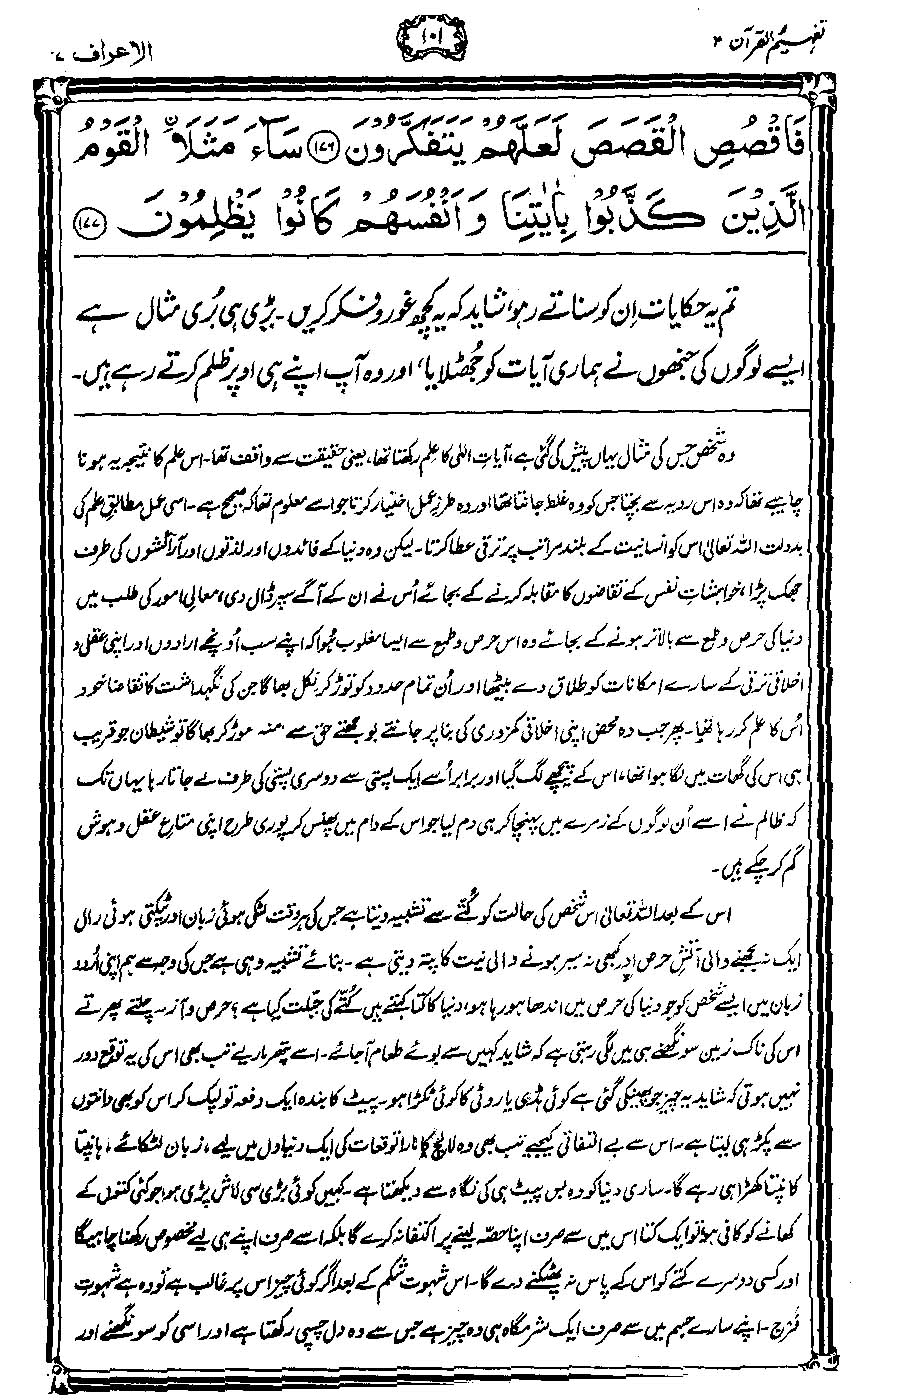 تفہیم القرآن ۲
۱۰۱
الاعراف ۷
فَاقْصُصِ الْقَصَصَ لَعَلَّهُمْ يَتَفَكَّرُوْنَ ﴿۱۷۶﴾ سَآءَ مَثَلَاۨ الْقَوْمُ
الَّذِيْنَ كَذَّبُوْا بِاٰيٰتِنَا وَ اَنْفُسَهُمْ كَانُوْا يَظْلِمُوْنَ ﴿۱۷۷﴾
تم یہ حکایات اِن کو سناتے رہو شاید کہ یہ کچھ غور و فکر کریں۔ بڑی ہی بُری مثال ہے
ایسے لوگوں کی جنھوں نے ہماری آیات کو جُھٹلایا، اور وہ آپ اپنے ہی اوپر ظلم کرتے رہے ہیں۔
وہ شخص جس کی مثال یہاں پیش کی گئی ہے، آیاتِ الٰہی کا علم رکھتا تھا، یعنی حقیقت سے واقف تھا۔ اس علم کا نتیجہ یہ ہونا
چاہیے تھا کہ وہ اس رویہ سے بچتا جس کو وہ غلط جانتا تھا اور وہ طرزِ عمل اختیار کرتا جو اسے معلوم تھا کہ صحیح ہے۔ اسی عمل مطابقِ علم کی
بدولت اللہ تعالیٰ اس کو انسانیت کے بلند مراتب پر ترقی عطا کرتا۔ لیکن وہ دنیا کے فائدوں اور لذتوں اور آرائشوں کی طرف
جھک پڑا، خواہشاتِ نفس کے تقاضوں کا مقابلہ کرنے کے بجائے اُس نے ان کے آگے سپر ڈال دی، معالی امور کی طلب میں
دنیا کی حرص و طمع سے بالاتر ہونے کے بجائے وہ اس حرص و طمع سے ایسا مغلوب ہُوا کہ اپنے سب اُونچے ارادوں اور اپنی عقلی و
اخلاقی ترقی کے سارے امکانات کو طلاق دے بیٹھا اور اُن تمام حدود کو توڑ کر نکل بھاگا جن کی نگہداشت کا تقاضا خود
اُس کا علم کر رہا تھا۔ پھر جب وہ محض اپنی اخلاقی کمزوری کی بنا پر جانتے بوجھتے حق سے منہ موڑ کر بھاگا تو شیطان جو قریب
ہی اس کی گھات میں لگا ہوا تھا، اس کے پیچھے لگ گیا اور برابر اُسے ایک پستی سے دوسری پستی کی طرف لے جاتا رہا یہاں تک
کہ ظالم نے اسے اُن لوگوں کے زمرے میں پہنچا کر ہی دم لیا جو اس کے دام میں پھنس کر پوری طرح اپنی متاعِ عقل و ہوش
گم کر چکے ہیں۔
اس کے بعد اللہ تعالیٰ اس شخص کی حالت کو کُتّے سے تشبیہ دیتا ہے جس کی ہر وقت لٹکی ہوئی زبان اور ٹپکتی ہوئی رال
ایک نہ بجھنے والی آتشِ حرص اور کبھی نہ سیر ہونے والی نیت کا پتہ دیتی ہے۔ بنائے تشبیہ وہی ہے جس کی وجہ سے ہم اپنی اُردو
زبان میں ایسے شخص کو جو دنیا کی حرص میں اندھا ہو رہا ہو، دنیا کا کتا کہتے ہیں۔ کُتّے کی جبلّت کیا ہے؟ حرص و آز۔ چلتے پھرتے
اس کی ناک زمین سونگھنے ہی میں لگی رہتی ہے کہ شاید کہیں سے بوئے طعام آ جائے۔ اسے پتھر ماریے تب بھی اس کی یہ توقع دور
نہیں ہوتی کہ شاید یہ چیز جو پھینکی گئی ہے کوئی ہڈی یا روٹی کا کوئی ٹکڑا ہو۔ پیٹ کا بندہ ایک دفعہ تو لپک کر اس کو بھی دانتوں
سے پکڑ ہی لیتا ہے۔ اس سے بے التفاتی کیجیے تب بھی وہ لالچ کا مارا توقعات کی ایک دنیا دل میں لیے، زبان لٹکائے، ہانپتا
کانپتا کھڑا ہی رہے گا۔ ساری دنیا کو وہ بس پیٹ ہی کی نگاہ سے دیکھتا ہے۔ کہیں کوئی بڑی سی لاش پڑی ہو، جو کئی کتوں کے
کھانے کو کافی ہو تو ایک کتا اس میں سے صرف اپنا حصّہ لینے پر اکتفا نہ کرے گا بلکہ اسے صرف اپنے ہی لیے مخصوص رکھنا چاہیگا
اور کسی دوسرے کتے کو اس کے پاس نہ پھٹکنے دے گا۔ اس شہوتِ شکم کے بعد اگر کوئی چیز اس پر غالب ہے تو وہ ہے شہوتِ
فَرْج۔ اپنے سارے جسم میں سے صرف ایک شرمگاہ ہی وہ چیز ہے جس سے وہ دل چسپی رکھتا ہے اور اسی کو سونگھنے اور